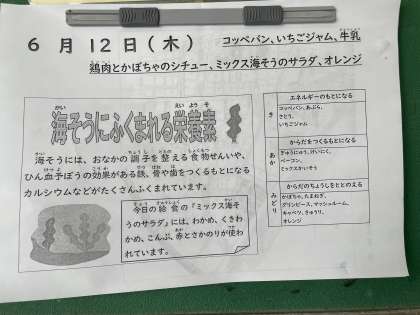 6月12日(木)
コッペパン、いちごジャム、牛乳
鶏肉とかぼちゃのシチュー、ミックス海そうのサラダ、オレンジ
海そうにふくまれる栄養素
海そうには、おなかの調子を整える食物せんいや、
ひん血予ぼうの効果がある鉄、骨や歯をつくるもとになる
カルシウムなどがたくさんふくまれています。
今日の給食の『ミックス海そ
うのサラダ』には、わかめ、くきわ
かめ、こんぶ、赤とさかのりが使わ
れています。
き
エネルギーのもとになる
コッペパン、あぶら、
さとう、
いちごジャム
あか
からだをつくるもとになる
ぎゅうにゅう、けいにく、
ベーコン、
ミックスかいそう
みどり
からだのちょうしをととのえる
かぼちゃ、たまねぎ、
グリンピース、マッシュルーム、
キャベツ、きゅうり、
オレンジ